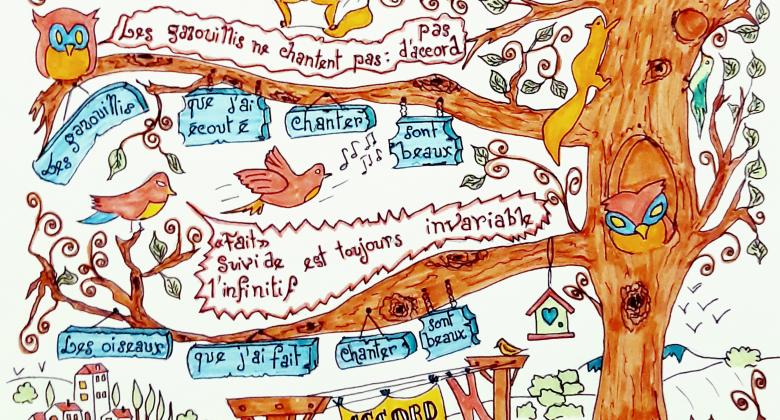 Les gazouillis ne chantent pas : pas d'accord
Les gazouillis
que j'ai
écouté
chanter
sont
beaux
«Fait»
suivi de
l'infinitif
est toujours invariable
Les oiseaux
que j'ai fait
chanter
sont
beaux
ACCORD